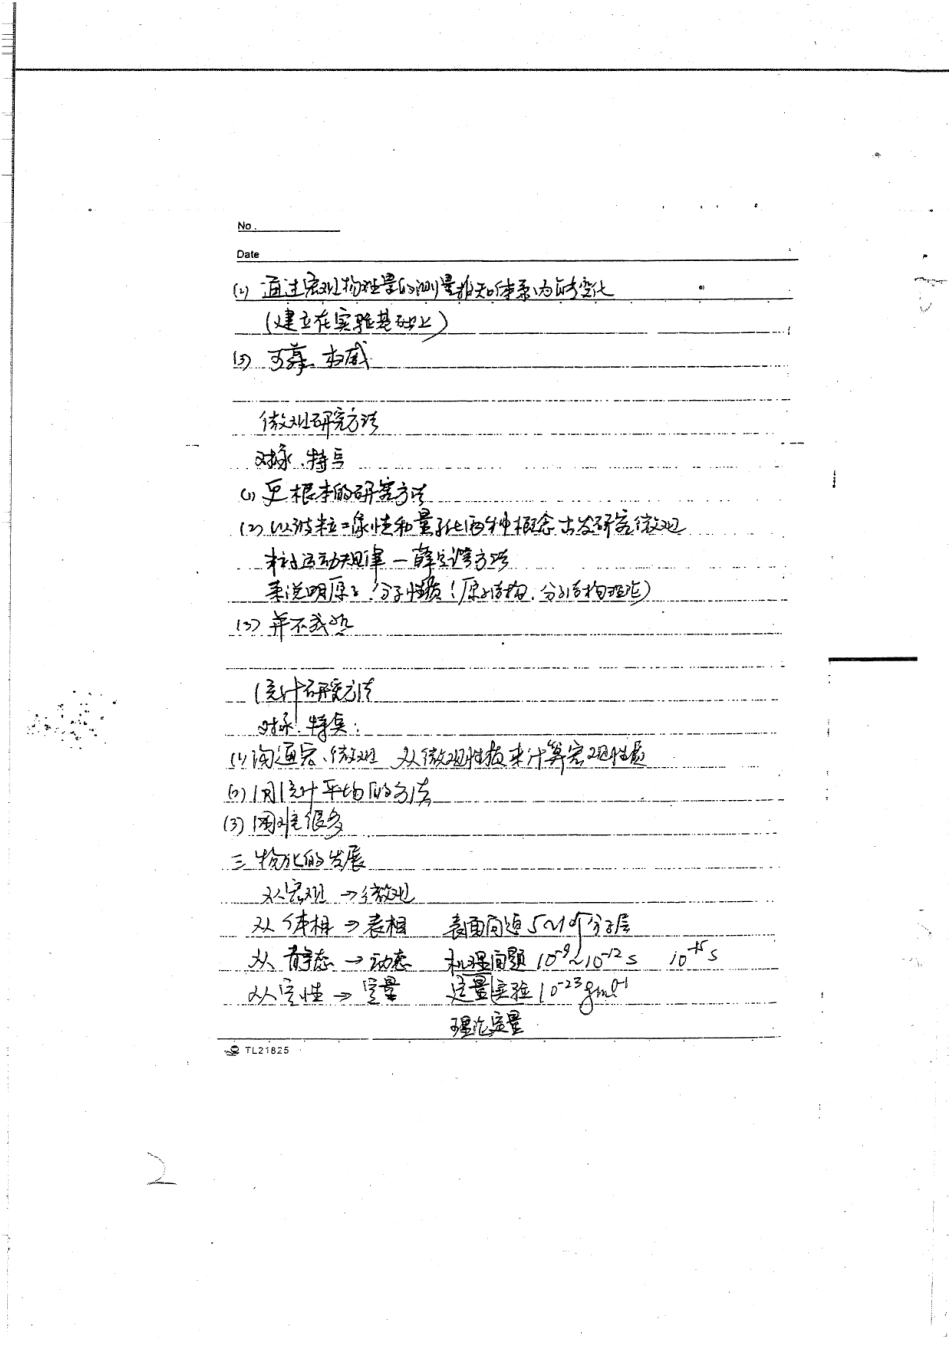 No.
Date
(2) 通过宏观物理量的测量推知体系内部变化
(建立在实验基础上)
(3) 可靠、权威
微观研究方法
对象、特点
(1) 更根本的研究方法
(2) 以波粒二象性和量子化两种概念出发研究微观
粒子运动规律—薛定谔方程
来说明原子、分子性质(原子结构、分子结构理论)
(3) 并不成熟
统计研究方法
对象、特点:
(1) 沟通宏、微观 从微观性质来计算宏观性质
(2) 用统计平均的方法
(3) 困难很多
三 物化的发展
从宏观 → 微观
从体相 → 表相 表面问题 5~10个分子层
从静态 → 动态 机理问题 10⁻⁹~10⁻¹² s 10⁻¹⁵ s
从定性 → 定量 定量实验 10⁻²³ g ml⁻¹
理论定量
TL21825
2